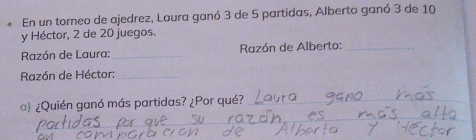 En un torneo de ajedrez, Laura ganó 3 de 5 partidas, Alberto ganó 3 de 10
y Héctor, 2 de 20 juegos.
Razón de Laura: Razón de Alberto:
Razón de Héctor:
a) ¿Quién ganó más partidas? ¿Por qué? Laura gano más
partidas por que su razón, es más alta
en comparación de Alberto y Héctor